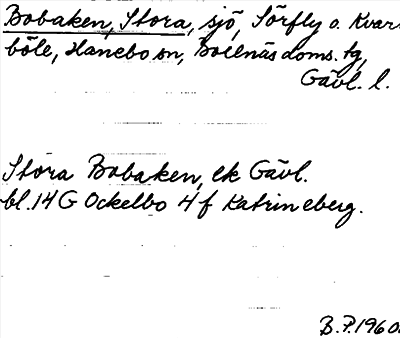 Bobaken, Stora, sjö, Sörfly o. Kvar
böle, Hanebo sn, Bollnäs doms. tg,
Gävl. l.
Stora Bobaken, ek Gävl.
bl. 14 G Ockelbo 4 f Katrineberg.
B.P. 1960.